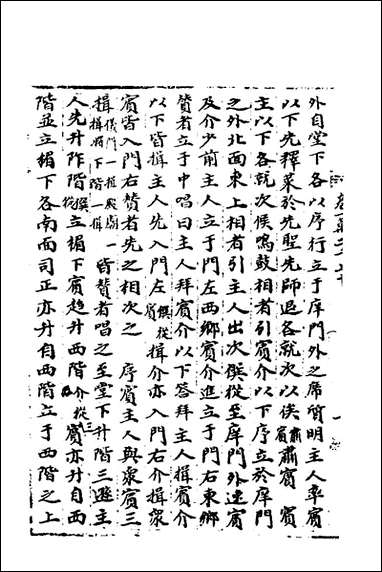 外自堂下各以序行立于庠門外之席質明主人率賓
以下先釋菜於先聖先師退各就次以俟肅賓 賓
主以下各就次候鳴鼓相者引賓介以下序立於庠門
之外北面東上相者引主人出次僎從至庠門外迎賓
及介少前主人立于門左西鄉賓介進立于門右東鄉
贊者立于中唱曰主人拜賓介以下荅拜主人揖賓介
以下皆揖主人先入門左僎從賓揖介亦入門右介揖衆
賓皆入門右贊者先之相次之 序賓主人與衆賓三
揖儀門一揖殿閣一揖將下階一揖皆贊者唱之至堂下升階三遜主
人先升阼階僎從立楣下賓趨升西階介從三賓亦升自西
階並立楣下各南面司正亦升自西階立于西階之上